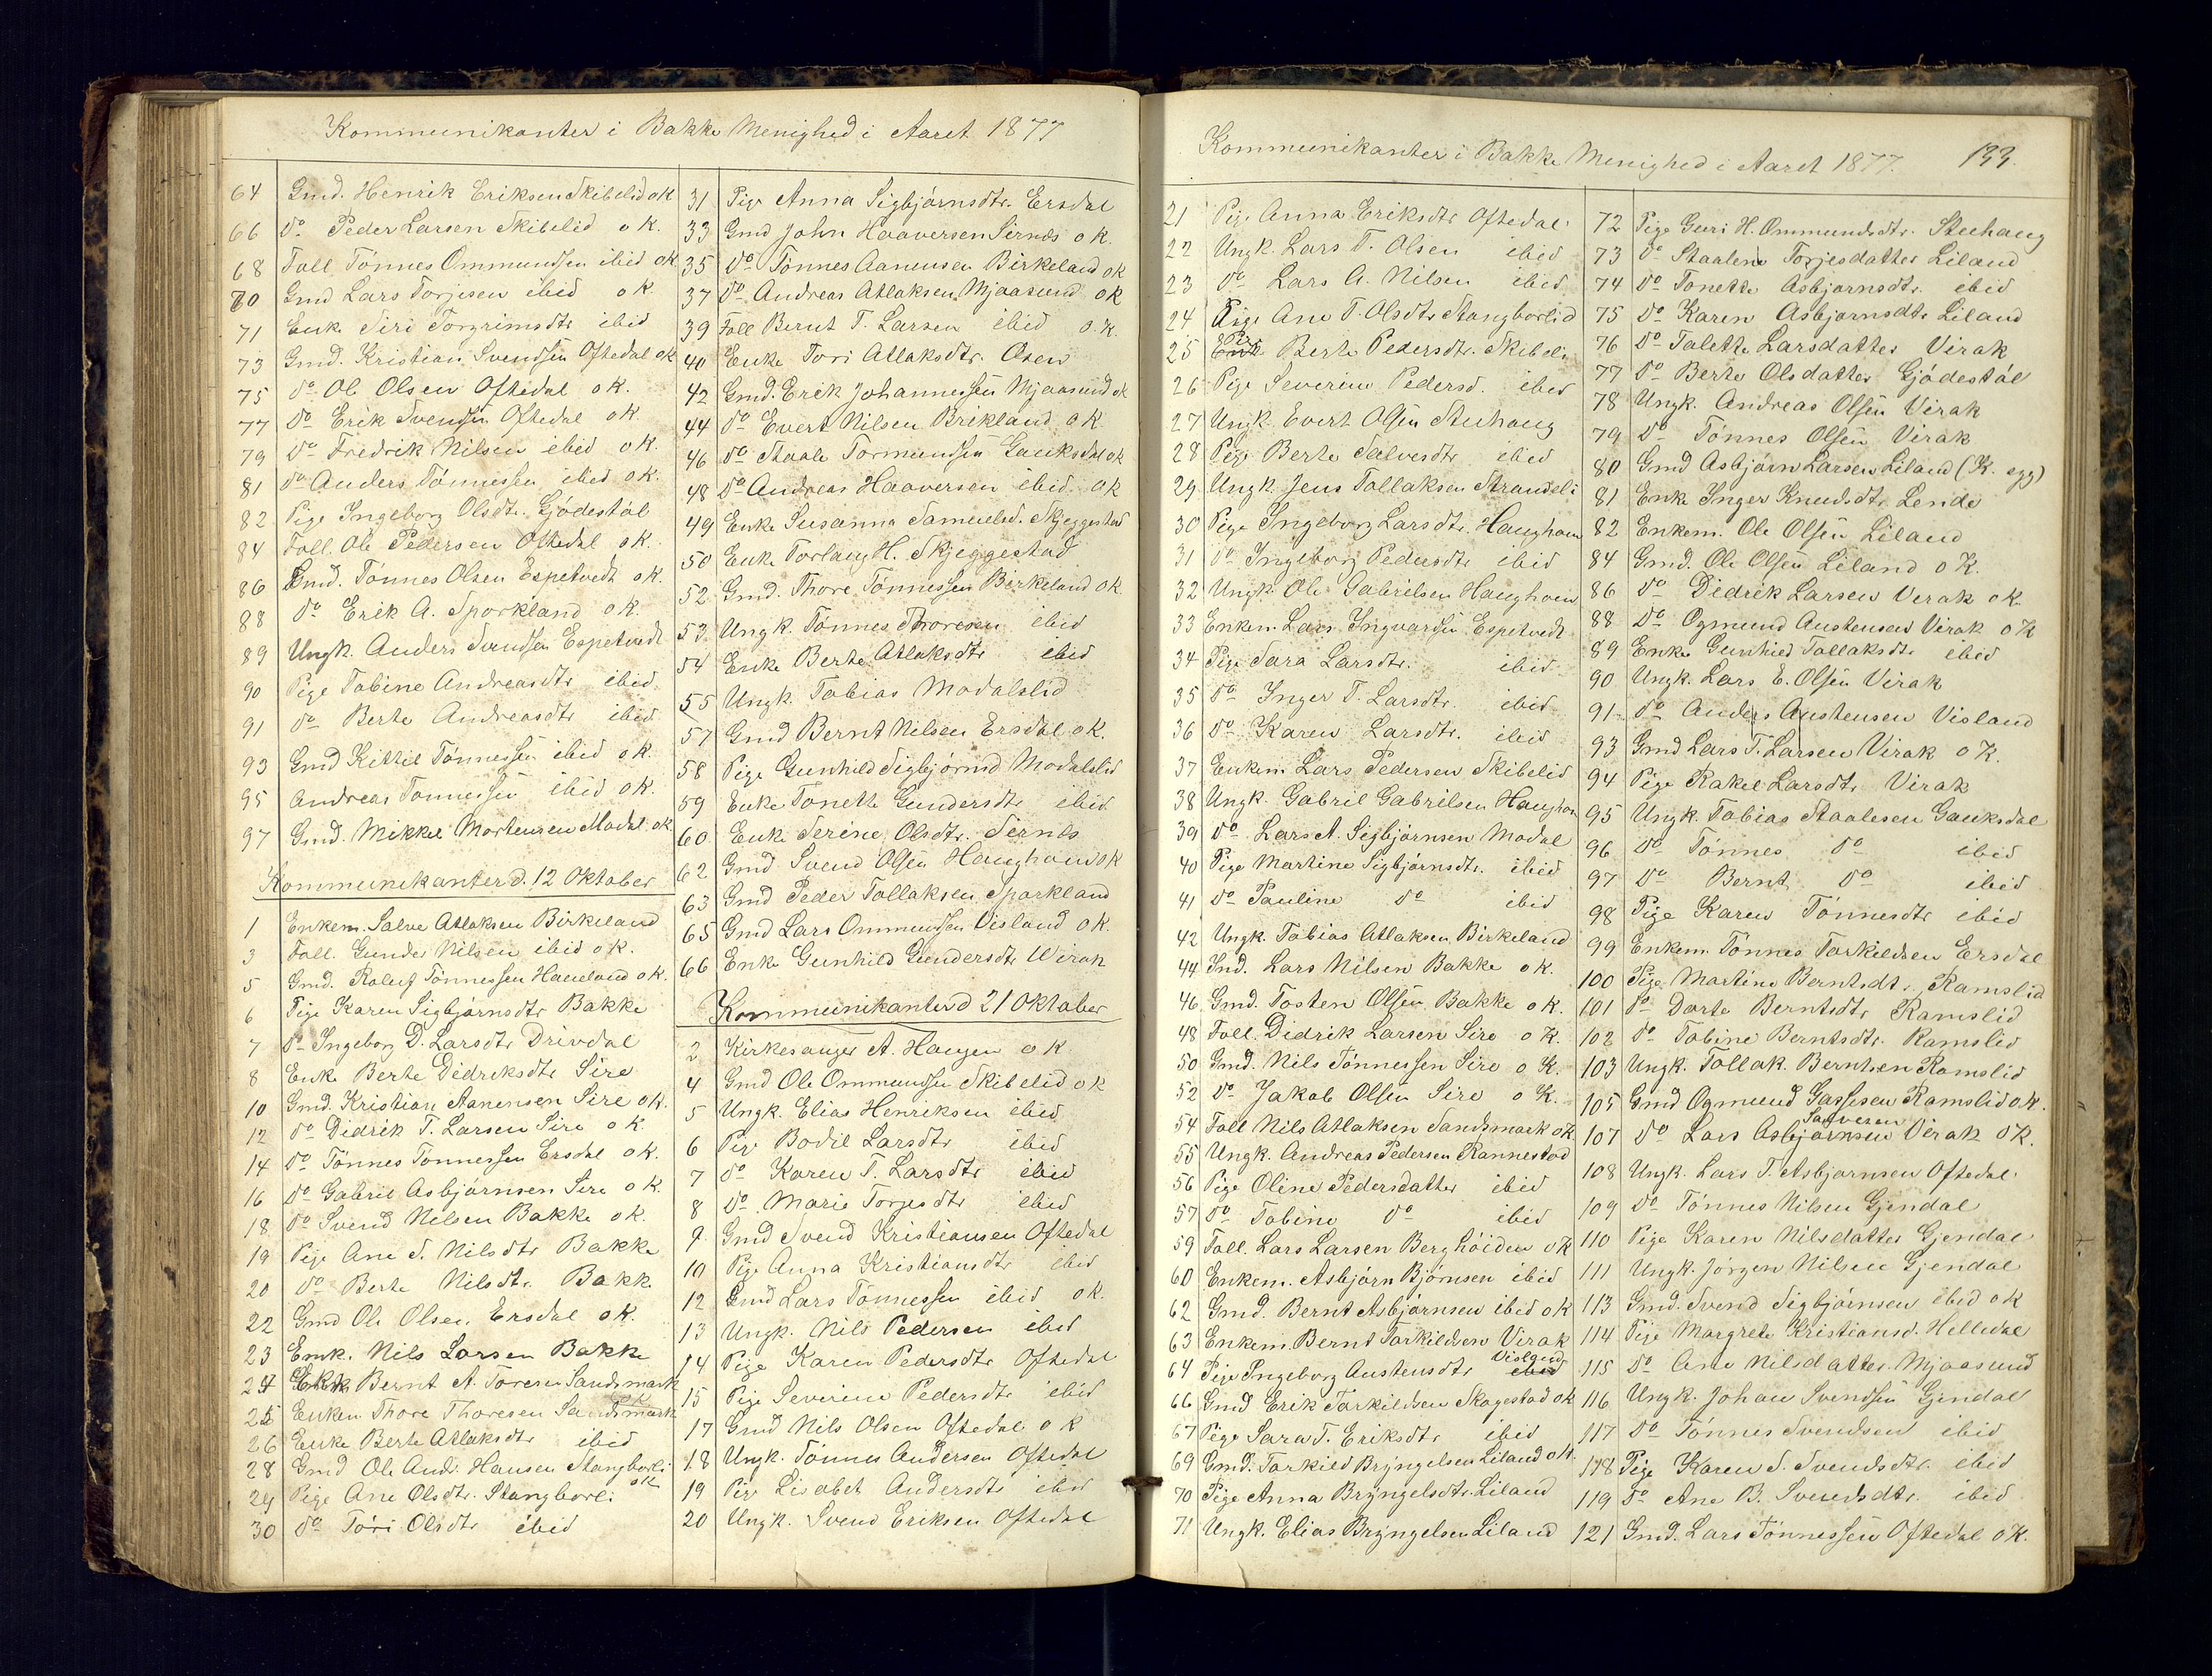 Kommunikanter i Bakke Menighed i Aaret 1877
64 Gmd. Henrik Eriksen Skibelid o K
66 do Peder Larsen Skibelid o K.
68 Foll. Tönnes Ommundsen ibid o K.
70 Gmd Lars Torjesen ibid o K.
71 Enke Siri Torgrimsdtr ibid
73 Gmd. Kristian Svendsen Oftedal o K
75 do Ole Olsen Oftedal o K.
77 do Erik Svendsen Oftedal o K
79 do Fredrik Nilsen ibid o K.
81 do Anders Tönnessen ibid o K.
82 Pige Ingeborg Olsdtr. Gjödestöl
84 Foll. Ole Pedersen Oftedal o K.
86 Gmd. Tönnes Olsen Espetvedt o K.
88 do Erik A. Sporkland o K.
89 Ungk. Anders Svendsen Espetvedt
90 Pige Tobine Andreasdtr ibid.
91 do Berte Andreasdtr ibid
93 Gmd Kittil Tönnessen ibid o K.
95 Andreas Tonnessen ibid o K.
97 Gmd. Mikkel Mortensen Modal o K
Kommunikanter d. 12 Oktober
1 Enkem. Salve Atlaksen Birkeland
3 Foll. Gunder Nilsen ibid o K.
5 Gmd. Roluf Tönnessen Haueland o K.
6 Pige Karen Sigbjörnsdtr Bakke
7 do Ingeborg D. Larsdtr Drivdal
8 Enke Berte Didriksdtr Sire
10 Gmd. Kristian Aanensen Sire o K.
12 do Didrik T. Larsen Sire o K
14 do Tönnes Tönnessen Ersdal o K.
16 do Gabril Asbjörnsen Sire o K.
18 do Svend Nilsen Bakke o K.
19 Pige Ane S. Nilsdtr Bakke
20 do Berte Nilsdtr. Bakke
22 Gmd Ole Olsen Ersdal o K.
23 Emk. Nils Larsen Bakke
24 Bernt A. Toresen Sandsmark
25 Enkem Thore Thoresen Sandsmark
26 Enke Berte Atlaksdtr ibid
28 Gmd Ole Andr. Hansen Stangborli o K
29 Pige Ane Olsdtr. Stangborli
30 do Töri Olsdtr ibid
31 Pige Anna Sigbjörnsdtr. Ersdal
33 Gmd John Haaversen Sirnes o K.
35 do Tönnes Aanensen Birkeland o K
37 do Andreas Atlaksen Mjaasund o K
39 Foll Bernt T. Larsen ibid o. K.
40 Enke Tori Atlaksdtr. Osen
42 Gmd. Erik Johannessen Mjaasund o K
44 do Evert Nilsen Brikland o K
46 do Staale Tormundsen Gauksdal o K
48 do Andreas Haaversen ibid. o K
49 Enke Susanna Samuelsd. Skjeggestad
50 Enke Torlaug H. Skjeggestad
52 Gmd. Thore Tönnessen Birkeland o K.
53 Ungk. Tönnes Thoresen ibid
54 Enke Berte Atlaksdtr ibid
55 Ungk. Tobias Modalslid
57 Gmd Bernt Nilsen Ersdal o K.
58 Pige Gunhild Sigbjörnsd Modalslid
59 Enke Tonette Gundersdtr ibid
60 Enke Serine Olsdtr. Sernes
62 Gmd Svend Olsen Haughom o K
63 Gmd Peder Tollaksen Sporkland
65 Gmd Lars Ommundsen Visland o K.
66 Enke Gunhild Gundersdtr Wirak
Kommunikanter d 21 Oktober
2 Kirkesanger A. Haugen o K
4 Gmd Ole Ommundsen Skibelid o K
5 Ungk. Elias Henriksen ibid
6 Pige Bodil Larsdtr ibid
7 do Karen T. Larsdtr ibid
8 do Marie Torjesdtr ibid
9 Gmd Svend Kristiansen Oftedal
10 Pige Anna Kristiansdtr ibid
12 Gmd Lars Tönnessen ibid o K.
13 Ungk. Nils Pedersen ibid
14 Pige Karen Pedersdtr Oftedal
15 Pige Severine Pedersdtr ibid
17 Gmd Nils Olsen Oftedal o K
18 Ungk. Tönnes Andersen Oftedal
19 Pige Lisabet Andersdtr ibid
20 Ungk. Svend Eriksen Oftedal
Kommunikanter i Bakke Menighed i Aaret 1877. 133.
21 Pige Anna Eriksdtr Oftedal.
22 Ungk. Lars T. Olsen ibid
23 do Lars A. Nilsen ibid
24 Pige Ane T. Olsdtr Stangborlid
25 Berte Pedersdtr. Skibeli
26 Pige Severine Pedersd. ibid
27 Ungk. Evert Olsen Stuhaug
28 Pige Berte Salvesdtr ibid
29 Ungk. Jens Tollaksen Strandeli
30 Pige Ingeborg Larsdtr. Haughom
31 do Ingeborg Pedersdtr ibid
32 Ungk. Ole Gabrilsen Haughom
33 Enkem. Lars Ingvarsen Espetvedt
34 Pige Sara Larsdtr. ibid
35 do Inger T. Larsdtr. ibid
36 do Karen Larsdtr. ibid
37 Enkem Lars Pedersen Skibelid
38 Ungk. Gabril Gabrilsen Haughom
39 do Lars A. Sigbjörnsen Modal
40 Pige Martine Sigbjörnsdtr. ibid
41 do Pauline do ibid
42 Ungk. Tobias Atlaksen Birkeland
44 Ind. Lars Nilsen Bakke o K.
46 Gmd. Tosten Olsen Bakke o K.
48 Foll. Didrik Larsen Sire o K.
50 Gmd. Nils Tönnessen Sire o K.
52 do Jakob Olsen Sire o K.
54 Foll Nils Atlaksen Sandsmark o K
55 Ungk. Andreas Pedersen Rannestad
56 Pige Oline Pedersdatter ibid
57 do Tobine do ibid
59 Foll. Lars Larsen Berghöiden o K
60 Enkem. Asbjörn Björnsen ibid
62 Gmd. Bernt Asbjörnsen ibid o K
63 Enkem. Bernt Torkildsen Virak
64 Pige Ingeborg Austensdtr ibid Visland
66 Gmd Erik Torkildsen Skogestad o K
67 Pige Sara T. Eriksdtr ibid
69 Gmd. Torkild Bryngelsen Liland o K.
70 Pige Anna Bryngelsdtr. Liland
71 Ungk. Elias Bryngelsen Liland
72 Pige Guri H. Ommundsdtr. Stuhaug
73 do Staalene Torjesdatter Liland
74 do Tonette Asbjornsdtr. ibid
75 do Karen Asbjornsdtr Liland
76 do Talette Larsdatter Virak
77 do Berte Olsdatter Gjödestöl
78 Ungk. Andreas Olsen Virak
79 do Tönnes Olsen Virak
80 Gmd Asbjörn Larsen Liland (K. syg)
81 Enke Inger Knudsdtr. Lende
82 Enkem. Ole Olsen Liland
84 Gmd. Ole Olsen Liland o K.
86 do Didrik Larsen Virak o K.
88 do Ogmund Austensen Virak o K
89 Enke Gunhild Tollaksdtr ibid
90 Ungk. Lars E. Olsen Virak
91 do Anders Austensen Visland
93 Gmd Lars T. Larsen Virak o K.
94 Pige Rakel Larsdtr Virak
95 Ungk. Tobias Staalesen Gauksdal
96 do Tönnes do ibid
97 do Bernt do ibid
98 Pige Karen Tönnesdtr ibid
99 Enkem. Tönnes Torkildsen Ersdal
100 Pige Martine Berntsdtr. Ramslid
101 do Dorte Berntsdtr Ramslid
102 do Tobine Berntsdtr. Ramslid
103 Ungk. Tollak Berntsen Ramslid
105 Gmd Ogmund Gassesen Ramslid o K.
107 do Lars Asbjörnsen Virak o K.
108 Ungk. Lars T. Asbjornsen Oftedal.
109 do Tönnes Nilsen Gjendal
110 Pige Karen Nilsdatter Gjendal
111 Ungk. Jörgen Nilsen Gjendal
113 Gmd. Svend Sigbjörnsen ibid o K
114 Pige Margrete Kristiansd. Helledal
115 do Ane Nilsdatter Mjaasund
116 Ungk. Johan Svendsen Gjendal
117 do Tönnes Svendsen ibid
118 Pige Karen S. Svendsdtr. ibid
119 do Ane B. Svendsdtr. ibid
121 Gmd. Lars Tönnessen Oftedal o K.